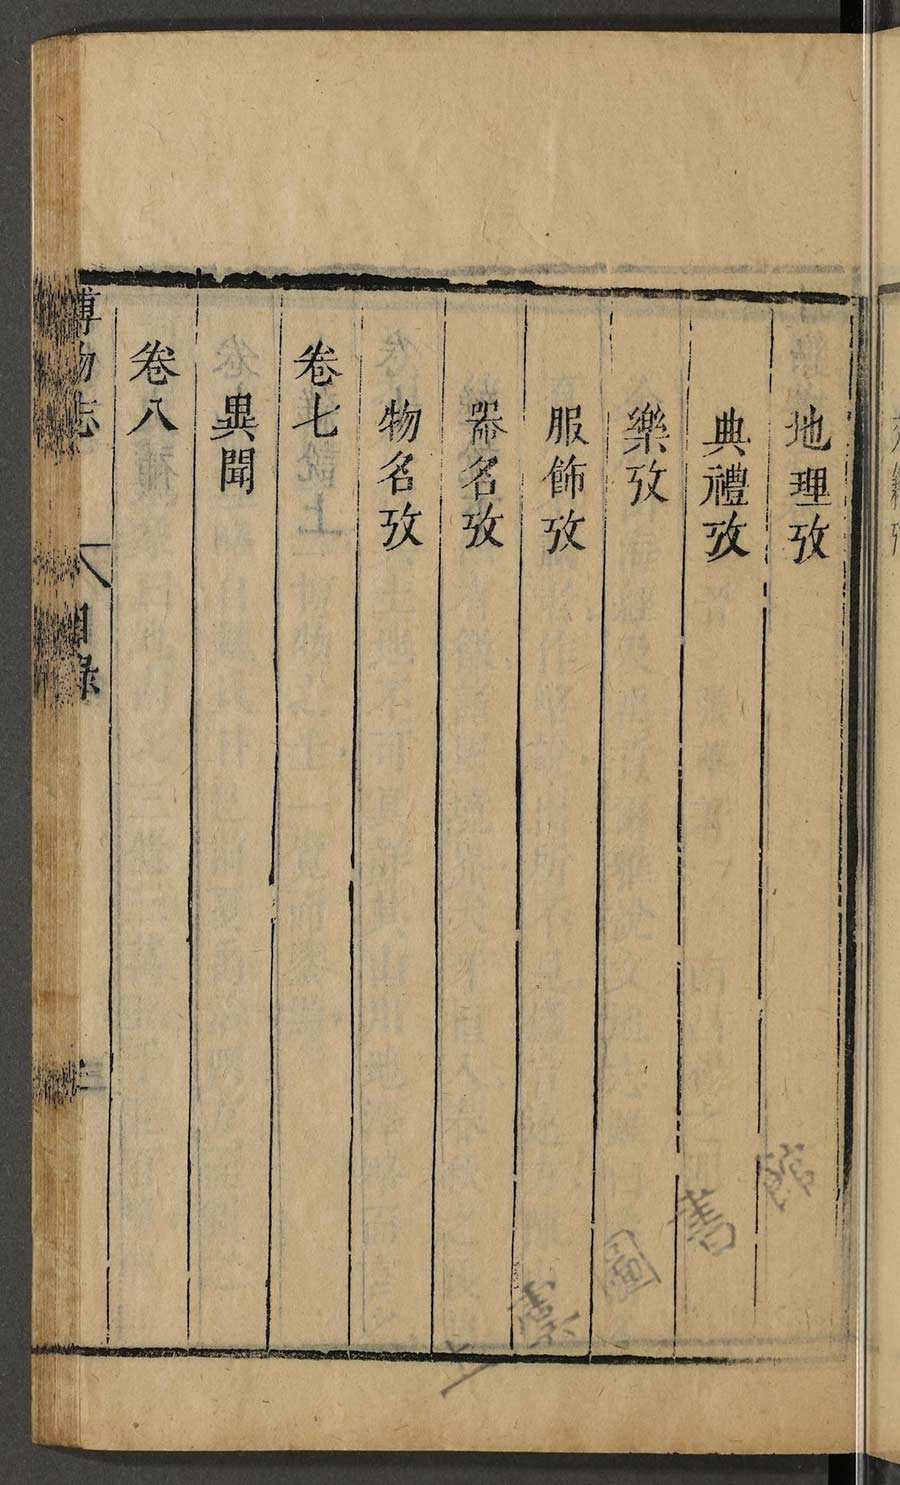 地理攷
典禮攷
樂攷
服飾攷
器名攷
物名攷
卷七
異聞
卷八
博物志 目錄 三
上雲圖書館